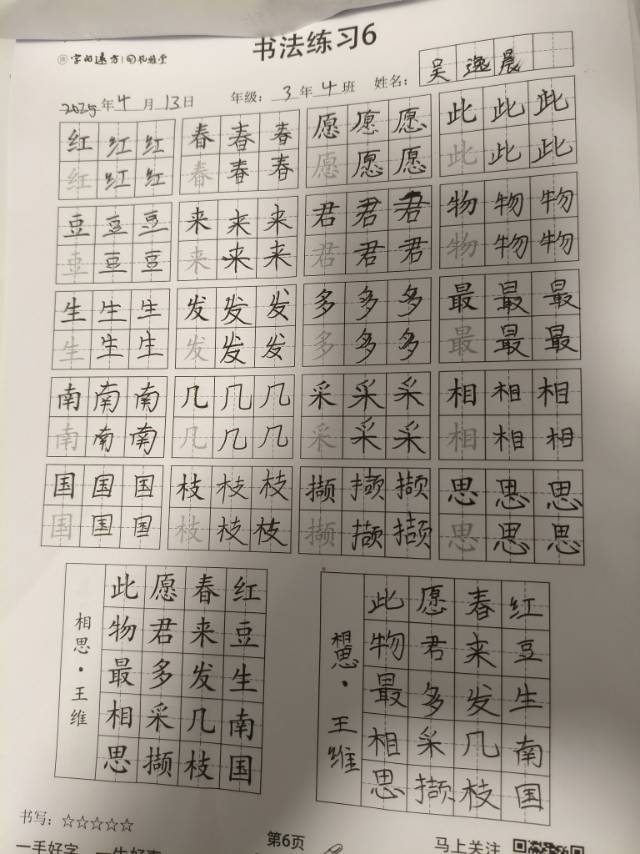 字的远方 | 句札雅堂
书法练习6
2025年4月13日 年级:3年4班 姓名:吴逸晨
红红红 春春春 愿愿愿 此此此
红红红 春春春 愿愿愿 此此此
豆豆豆 来来来 君君君 物物物
豆豆豆 来来来 君君君 物物物
生生生 发发发 多多多 最最最
生生生 发发发 多多多 最最最
南南南 几几几 采采采 相相相
南南南 几几几 采采采 相相相
国国国 枝枝枝 撷撷撷 思思思
国国国 枝枝枝 撷撷撷 思思思
红豆生南国
春来发几枝
愿君多采撷
此物最相思
相思·王维
红豆生南国
春来发几枝
愿君多采撷
此物最相思
相思·王维
书写:☆☆☆☆☆
第6页
马上关注
一手好字